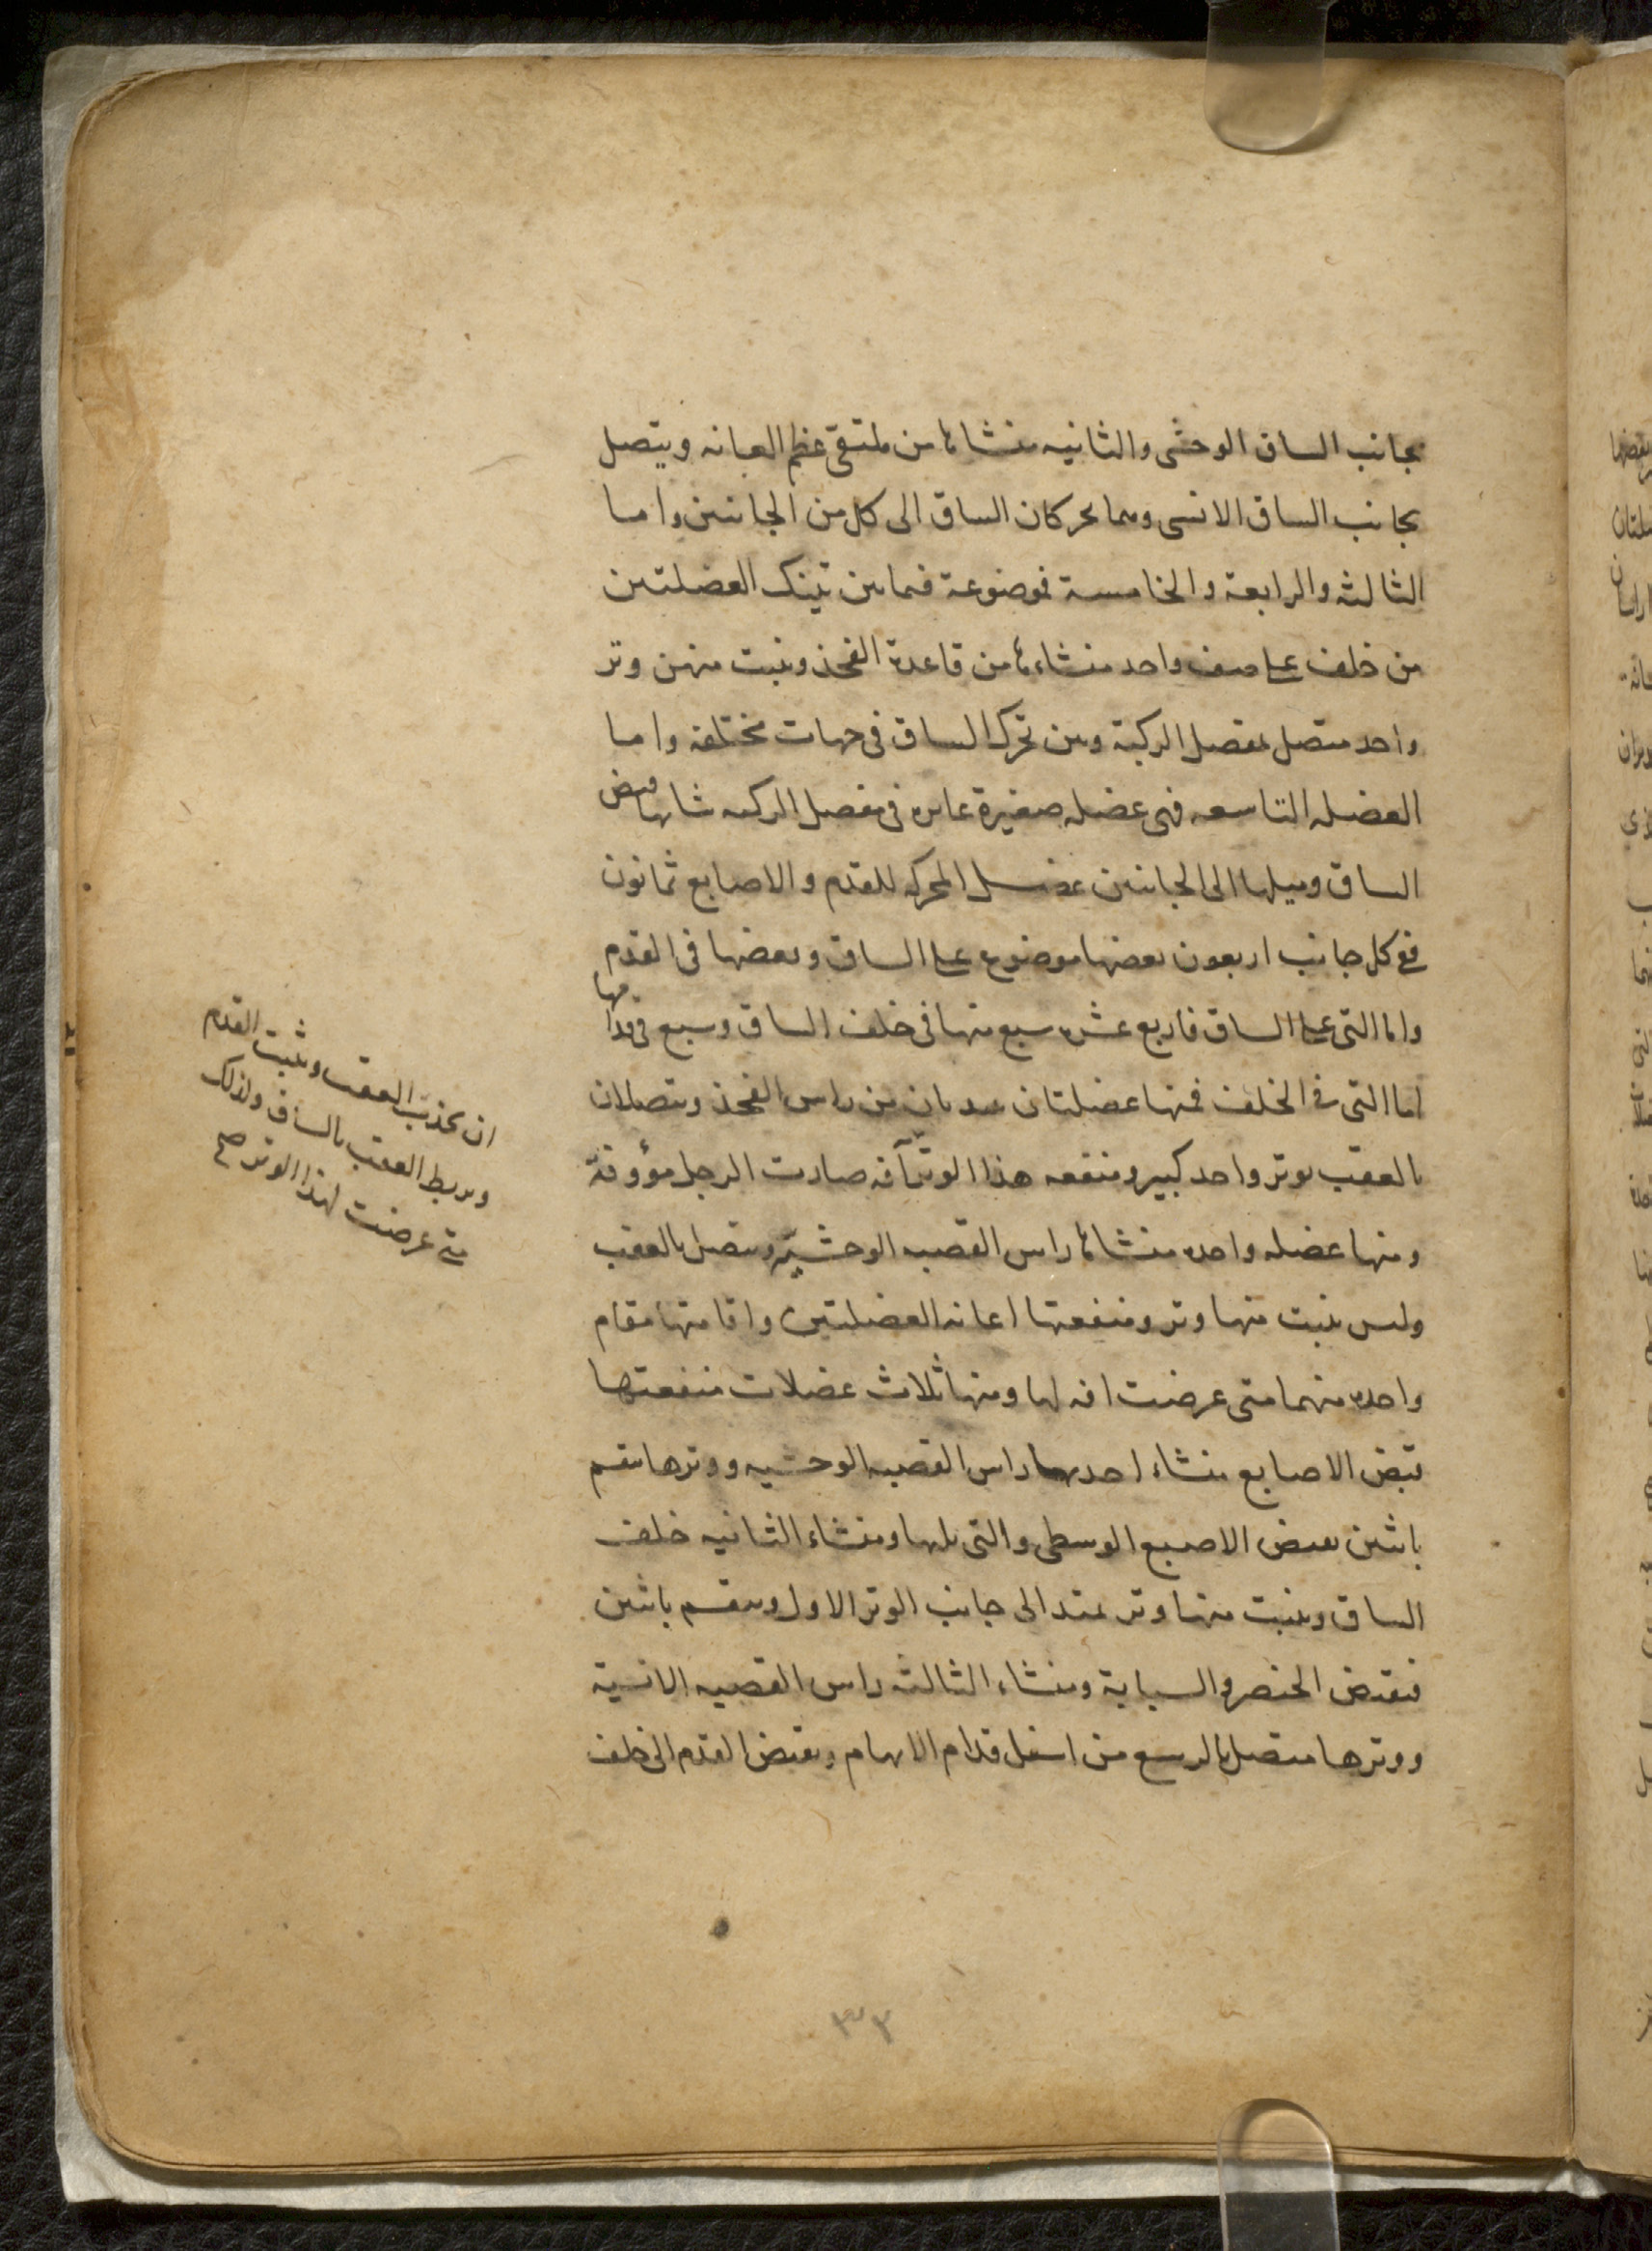 بجانب الساق الوحشى والثانيه منشاءها من ملتقى عظم العانه ويتصل
بجانب الساق الانسى وهما يحركان الساق الى كل من الجانبين واما
الثالثه والرابعة والخامسة فموضوعة فيما بين تينك العضلتين
من خلف على صف واحد منشاءها من قاعدة الفخذ وينبت منهن وتر
واحد متصل بمفصل الركبة وهن تحرك الساق فى جهات مختلفه واما
العضله التاسعه فهى عضله صغيرة غايره فى مفصل الركبه شانها قبض
الساق وميلها الى الجانبين عضل المحركه للقدم والاصابع ثمانون
ففى كل جانب اربعون بعضها موضوع على الساق وبعضها فى القدم
واما التى على الساق فاربع عشره سبع منها فى خلف الساق وسبع فى قدامها
اما التى فى الخلف فمنها عضلتان تبديان من راس الفخذ ويتصلان
بالعقب بوتر واحد كبير ومنفعه هذا الوتر آفه صارت الرجل مؤوفة
ومنها عضله واحده منشاءها راس القصبه الوحشيّه ويتصل بالعقب
وليس ينبت منها وتر ومنفعتها اعانه العضلتين واقامتها مقام
واحده منهما متى عرضت افه لها ومنها ثلاث عضلات منفعتها
قبض الاصابع منشاء احدىها راس القصبه الوحشيه ووترها ينقسم
باثنين يقبض الاصبع الوسطى والتى يليها ومنشاء الثانيه خلف
الساق وينبت منها وتر يمتد الى جانب الوتر الاول وينقسم باثنين
فيقبض الخنصر والسبابة ومنشاء الثالثه راس القصبه الانسية
ووترها متصل بالرسغ من اسفل قدام الابهام ويقبض القدم الى خلف
ان يجذب العقب ويثبت القدم
ويربط العقب بالساق ولذلك
متى عرضت لهذا الوتر صح
٣٣